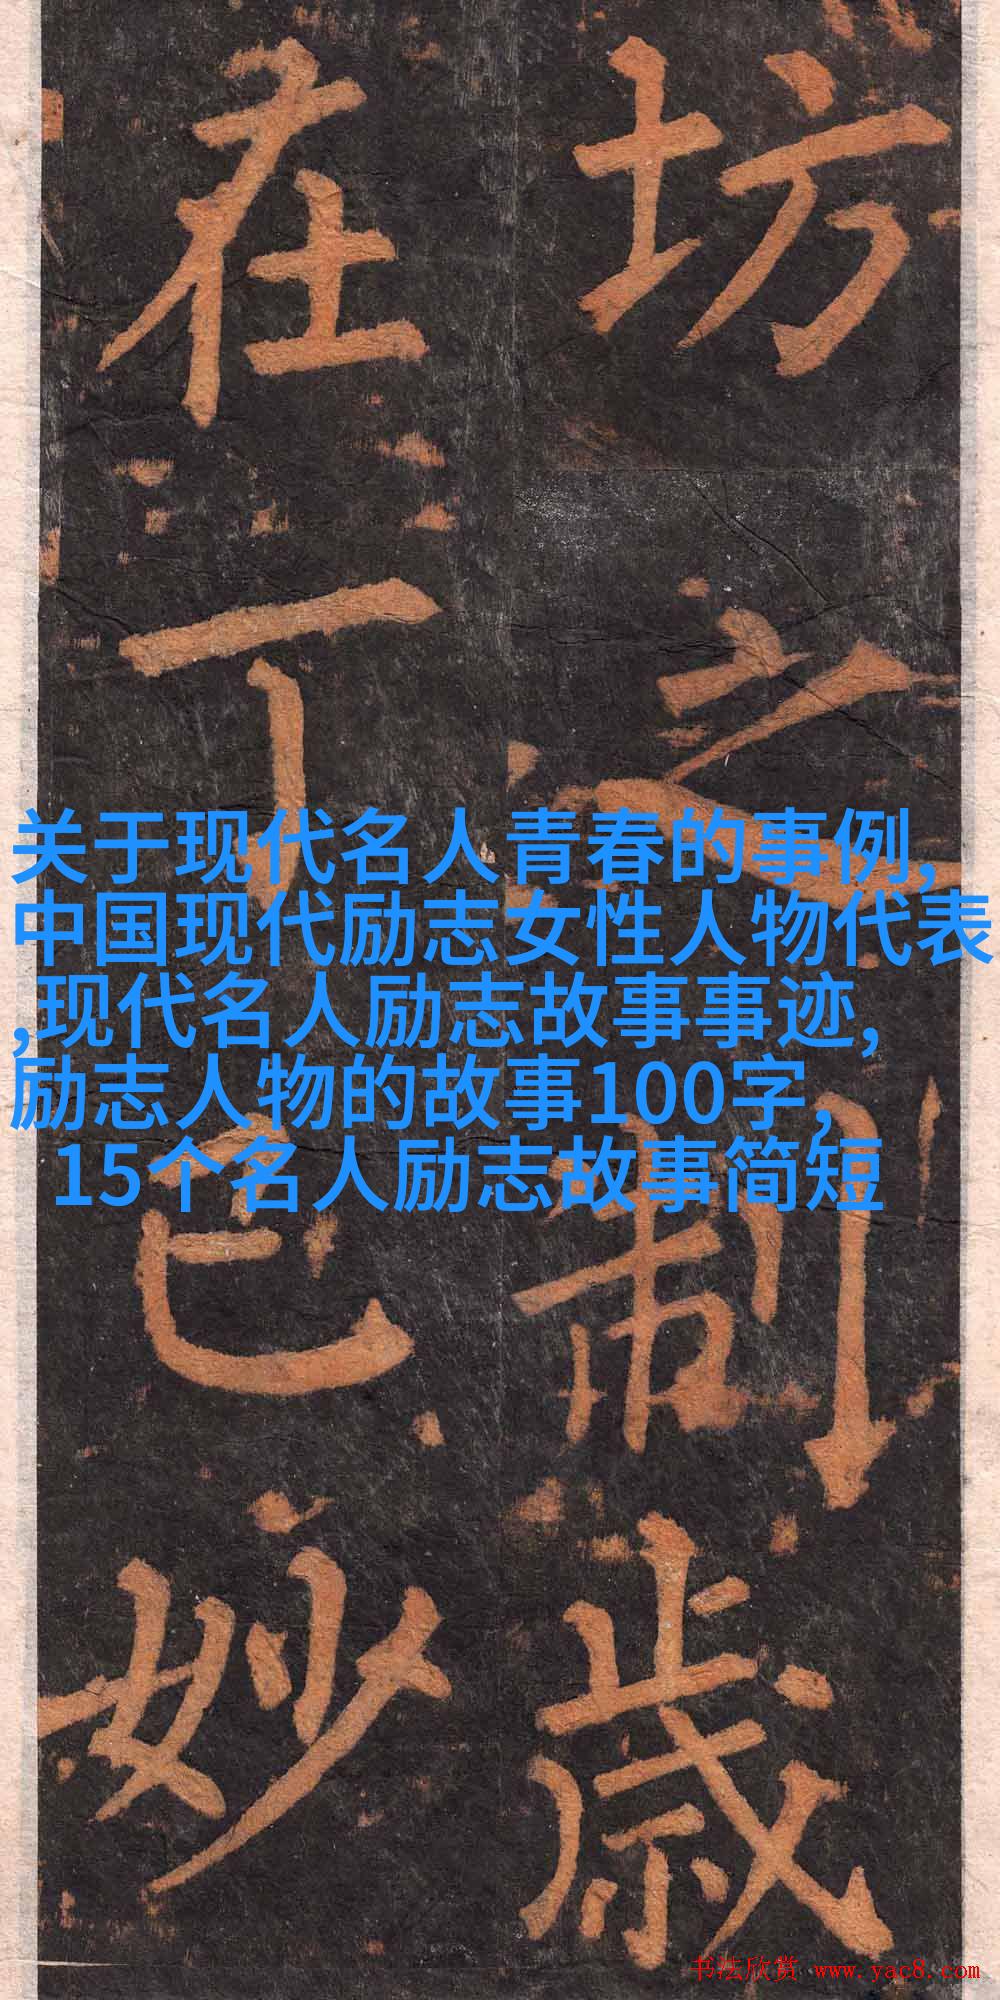 坊之制歲
在丁巳妙
关于现代名人青春的事例,
中国现代励志女性人物代表
,现代名人励志故事事迹,
励志人物的故事100字,
15个名人励志故事简短
书法欣赏 www.yac8.com